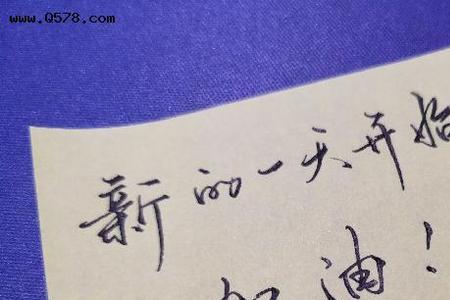 www.Q578.com
新的一天开始
加油！